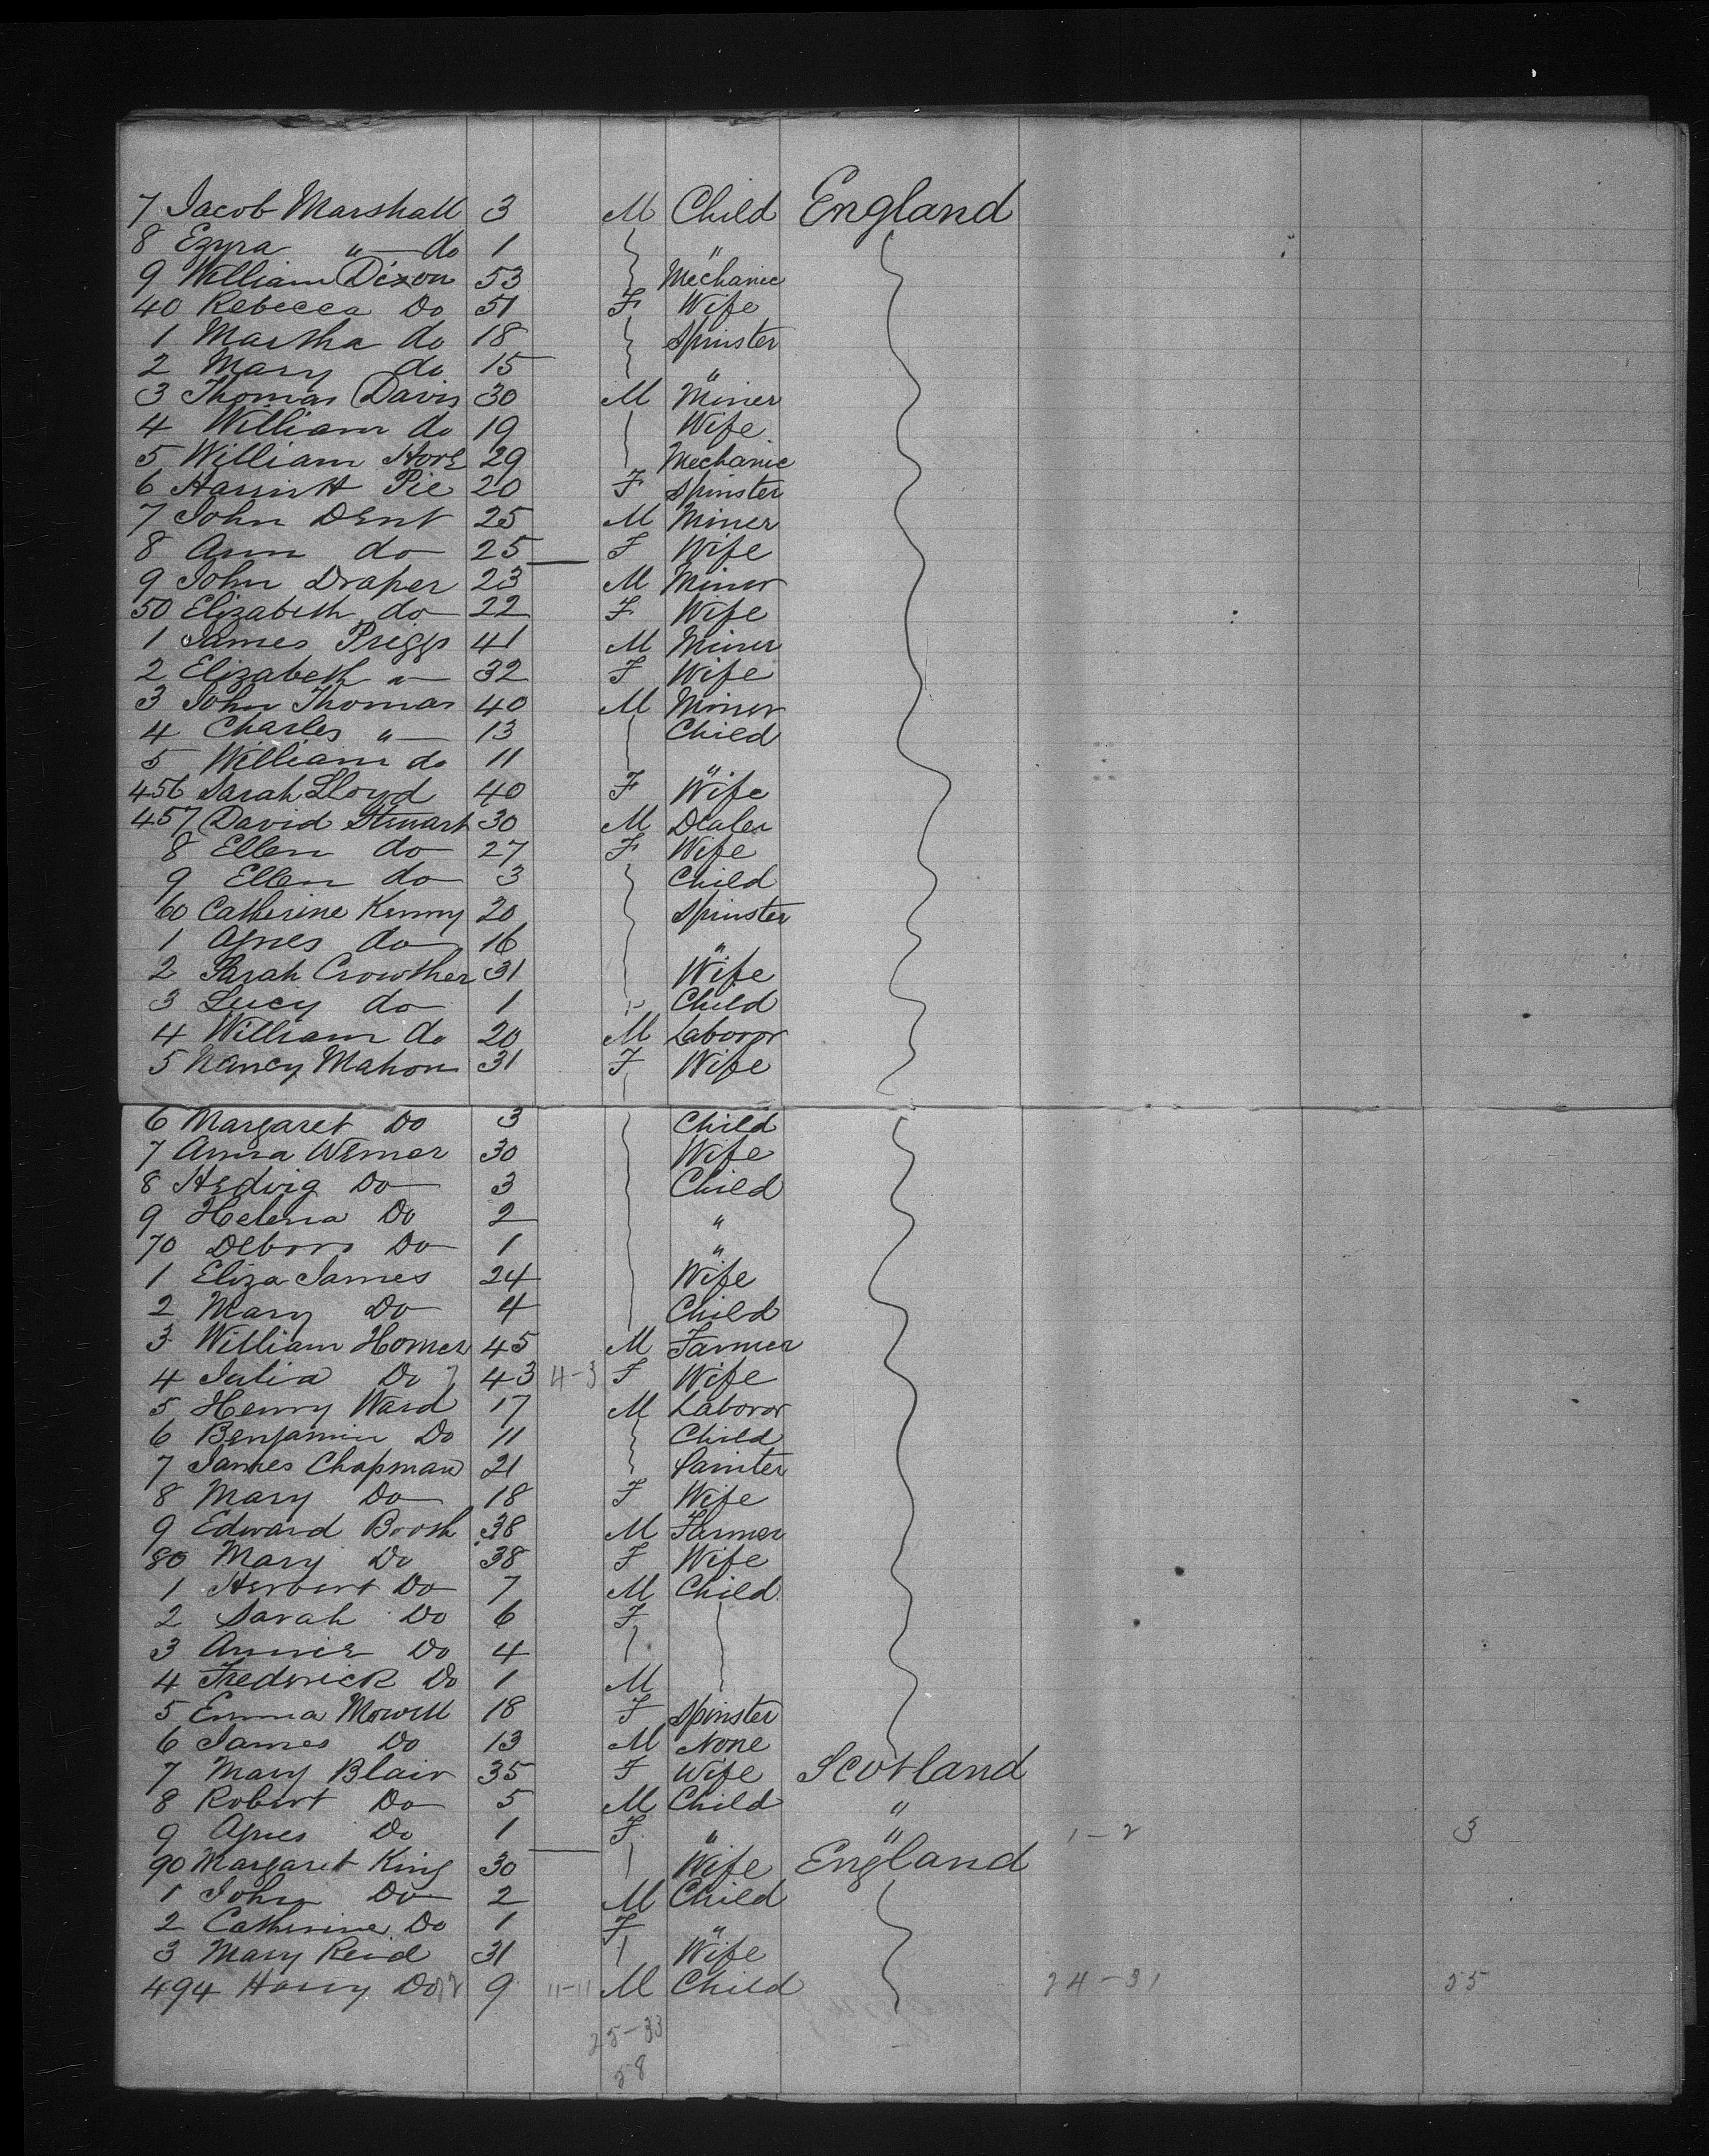 7 Jacob Marshall 3 M Child England
8 Ezyra " do 1 "
9 William Dixon 53 Mechanic
40 Rebecca Do 51 F Wife
1 Martha do 18 Spinster
2 Mary do 15 "
3 Thomas Davis 30 M Miner
4 William do 19 Wife
5 William 29 Mechanic
6 Pie 20 F Spinster
7 John Dent 25 M Miner
8 Ann do 25 F Wife
9 John Draper 23 M Miner
50 Elizabeth do 22 F Wife
1 James Priggs 41 M Miner
2 Elizabeth " 32 F Wife
3 John Thomas 40 M Miner
4 Charles " 13 Child
5 William do 11 "
456 Sarah Lloyd 40 F Wife
457 David Stewart 30 M Dealer
8 Ellen do 27 F Wife
9 Ellen do 3 Child
60 Catherine Kenny 20 Spinster
1 Agnes do 16 "
2 Sarah Crowther 31 Wife
3 Lucy do 1 Child
4 William do 20 M Laboror
5 Nancy Mahon 31 F Wife
6 Margaret Do 3 Child
7 Anna Werner 30 Wife
8 Hedvig Do 3 Child
9 Helena Do 2 "
70 Do 1 "
1 Eliza James 24 Wife
2 Mary Do 4 Child
3 William Homer 45 M Farmer
4 Julia Do 7 43 4-3 F Wife
5 Henry Ward 17 M Laboror
6 Benjamin Do 11 Child
7 James Chapman 21 Painter
8 Mary Do 18 F Wife
9 Edward Booth 38 M Farmer
80 Mary Do 38 F Wife
1 Herbert Do 7 M Child
2 Sarah Do 6 F
3 Annie Do 4
4 Frederick Do 1 M
5 Emma Mowell 18 F Spinster
6 James Do 13 M None
7 Mary Blair 35 F Wife Scotland
8 Robert Do 5 M Child "
9 Agnes Do 1 F " " 1-2 3
90 Margaret King 30 Wife England
1 John Do 2 M Child
2 Catherine Do 1 F "
3 Mary Reid 31 Wife
494 Harry Do 9 11-11 M Child 24-31 55
25-33
58